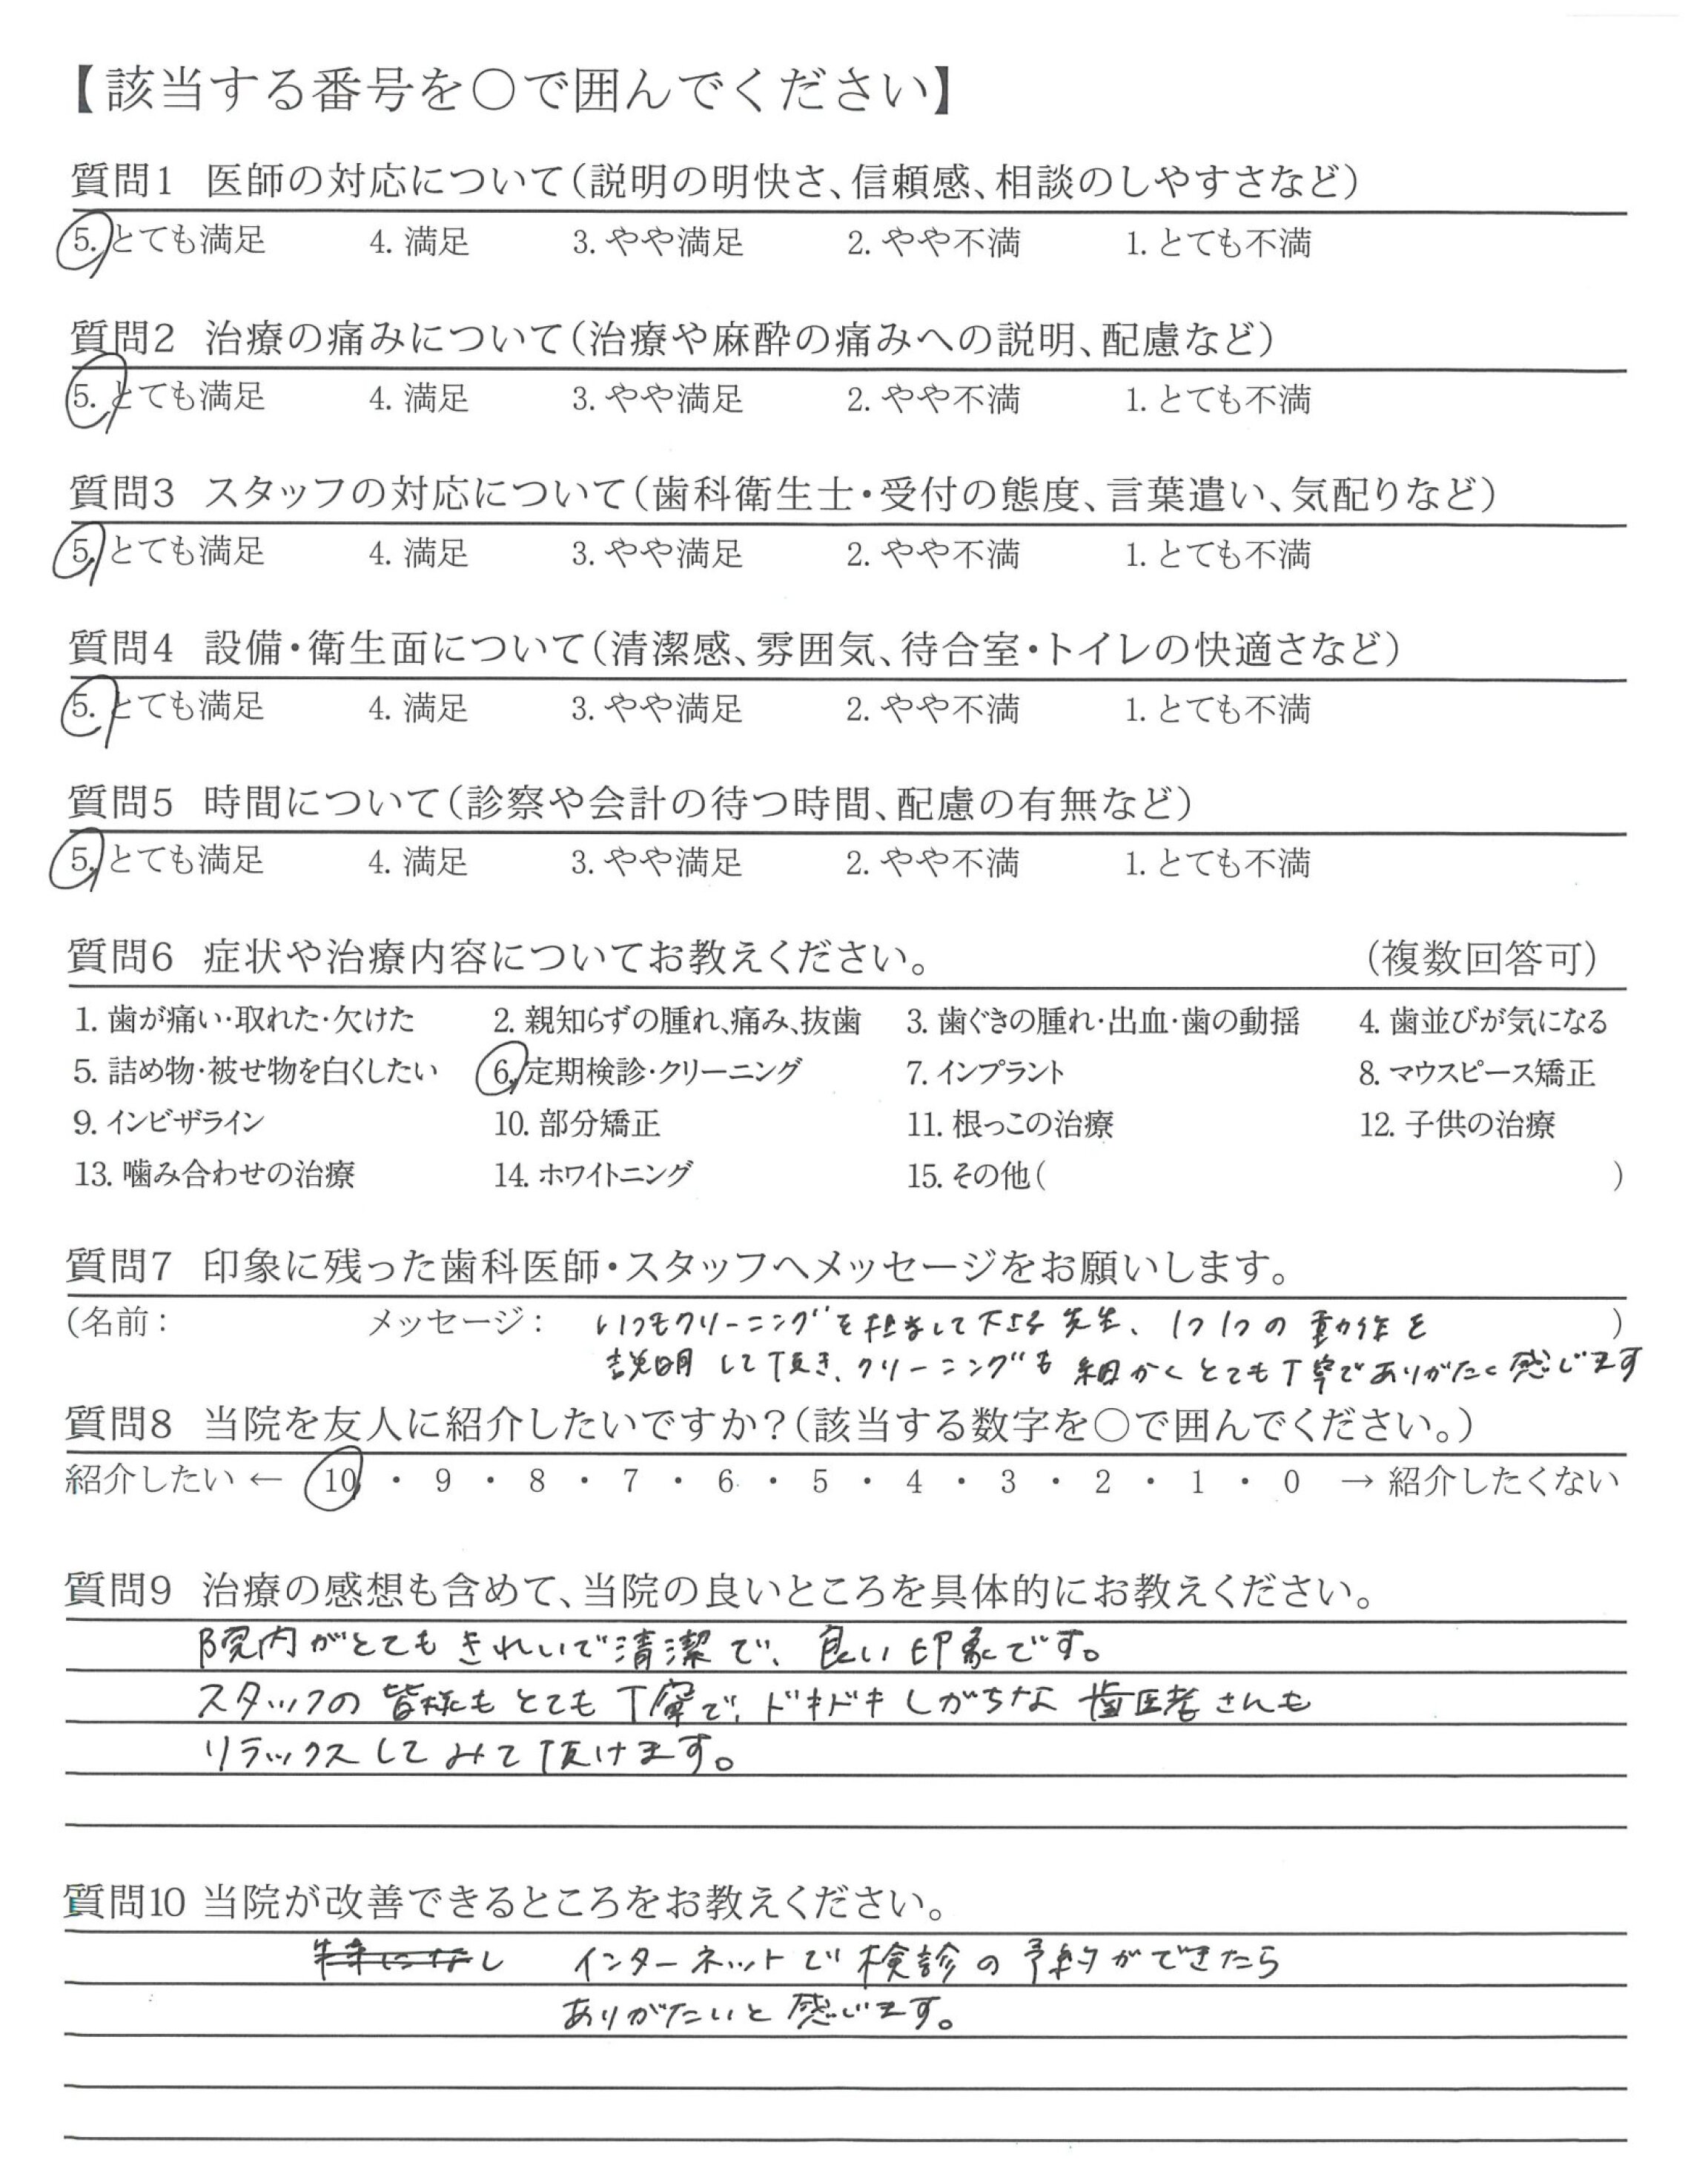 【該当する番号を〇で囲んでください】
質問1 医師の対応について(説明の明快さ、信頼感、相談のしやすさなど)
5. とても満足 4. 満足 3. やや満足 2. やや不満 1. とても不満
質問2 治療の痛みについて(治療や麻酔の痛みへの説明、配慮など)
5. とても満足 4. 満足 3. やや満足 2. やや不満 1. とても不満
質問3 スタッフの対応について(歯科衛生士・受付の態度、言葉遣い、気配りなど)
5. とても満足 4. 満足 3. やや満足 2. やや不満 1. とても不満
質問4 設備・衛生面について(清潔感、雰囲気、待合室・トイレの快適さなど)
5. とても満足 4. 満足 3. やや満足 2. やや不満 1. とても不満
質問5 時間について(診察や会計の待つ時間、配慮の有無など)
5. とても満足 4. 満足 3. やや満足 2. やや不満 1. とても不満
質問6 症状や治療内容についてお教えください。 (複数回答可)
1. 歯が痛い・取れた・欠けた 2. 親知らずの腫れ、痛み、抜歯 3. 歯ぐきの腫れ・出血・歯の動揺 4. 歯並びが気になる
5. 詰め物・被せ物を白くしたい 6. 定期検診・クリーニング 7. インプラント 8. マウスピース矯正
9. インビザライン 10. 部分矯正 11. 根っこの治療 12. 子供の治療
13. 噛み合わせの治療 14. ホワイトニング 15. その他( )
質問7 印象に残った歯科医師・スタッフへメッセージをお願いします。
(名前: メッセージ: いつもクリーニングを担当して下さる先生、1つ1つの動作を )
説明して頂き、クリーニングも細かくとても丁寧でありがたく感じます
質問8 当院を友人に紹介したいですか?(該当する数字を〇で囲んでください。)
紹介したい ← 10 ・ 9 ・ 8 ・ 7 ・ 6 ・ 5 ・ 4 ・ 3 ・ 2 ・ 1 ・ 0 → 紹介したくない
質問9 治療の感想も含めて、当院の良いところを具体的にお教えください。
院内がとてもきれいで清潔で、良い印象です。
スタッフの皆様もとても丁寧で、ドキドキしがちな歯医者さんも
リラックスしてみて頂けます。
質問10 当院が改善できるところをお教えください。
特になし インターネットで検診の予約ができたら
ありがたいと感じます。